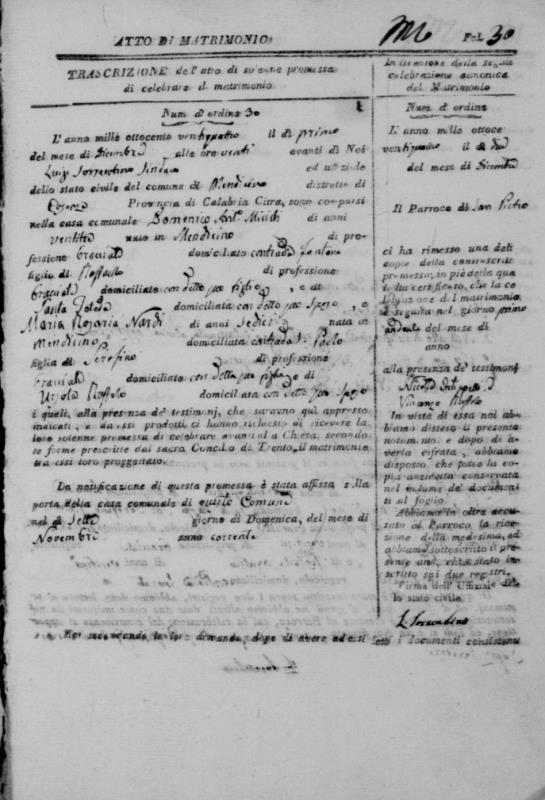 ATTO DI MATRIMONIO
Fol. 30
TRASCRIZIONE dell'atto di solenne promessa
di celebrare il matrimonio
Num d'ordine 30
L'anno mille ottocento ventiquattro il dì primo
del mese di Dicembre alle ore venti avanti di Noi
Luigi Sorrentino Sindaco ed uffiziale
dello stato civile del comune di Mendicino distretto di
Cosenza Provincia di Calabria Citra, sono comparsi
nella casa comunale Domenico Ant.o di anni
nato in Mendicino di pro-
fessione bracciale domiciliato contrada
figlio di Raffaele di professione
bracciale domiciliato con detto suo figlio, e di
domiciliata con detto suo sposo, e
Maria Rosaria Nardi di anni sedici nata in
Mendicino domiciliata contrada S. Paolo
figlia di Serafino di professione
bracciale domiciliato con detta sua figlia e di
Orsola Ruffolo domiciliata con detto suo sposo
i quali, alla presenza de' testimonj, che saranno quì appresso
indicati, e da essi prodotti, ci hanno richiesto di ricevere la
loro solenne promessa di celebrare avanti al a Chiesa, secondo
le forme prescritte dal sacro Concilio di Trento, il matrimonio
tra essi loro progettato.
La notificazione di questa promessa è stata affissa alla
porta della casa comunale di questo Comune
nel dì sette giorno di Domenica, del mese di
Novembre anno corrente
Noi secondando le loro domande, dopo di avere ad essi letti i documenti consistenti
Indicazione della seguita
celebrazione canonica
del Matrimonio
Num d'ordine
L'anno mille ottoce
ventiquattro il dì due
del mese di Dicembre
Il Parroco di San Pietro
ci ha rimesso una delle
copie della controscritta
promessa; in piè della qua
le ha certificato, che la ce
lebrazione del matrimonio
è seguita nel giorno primo
andante del mese di
anno
alla presenza de' testimonj
Vincenzo Ruffolo
In vista di essa noi ab-
biamo disteso il presente
notamento, e dopo di a-
verla cifrata, abbiamo
disposto, che fosse la co-
pia anzidetta conservata
nel volume de' documenti
al foglio.
Abbiamo in oltre accu-
sato al Parroco la rice-
zione della medesima, ed
abbiamo sottoscritto il pre-
sente atto, ch'è stato in-
scritto sui due registri.
Firma dell'Uffiziale del-
lo stato civile.
L. Sorrentino